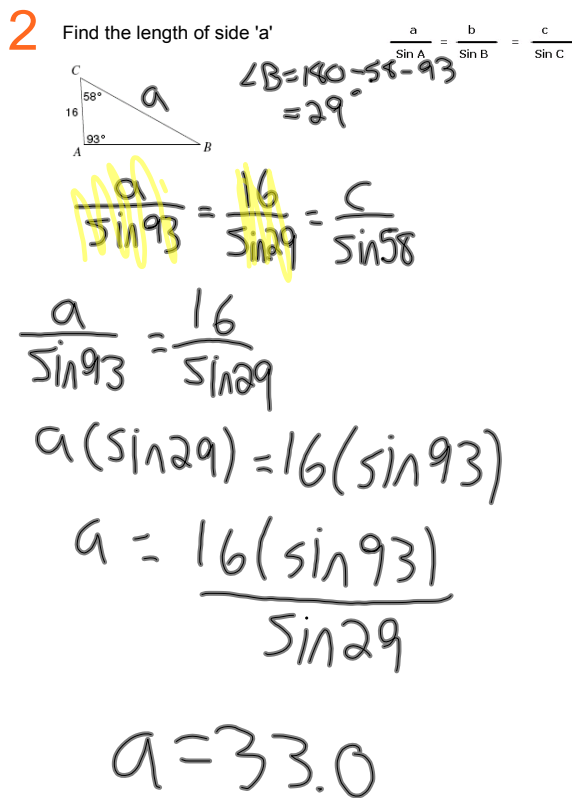 2 Find the length of side 'a'
a/Sin A = b/Sin B = c/Sin C
∠B=180-58-93
=29°
C
58°
a
16
93°
A
B
a/sin93 = 16/sin29 = c/sin58
a/sin93 = 16/sin29
a(sin29)=16(sin93)
a = 16(sin93)/sin29
a=33.0